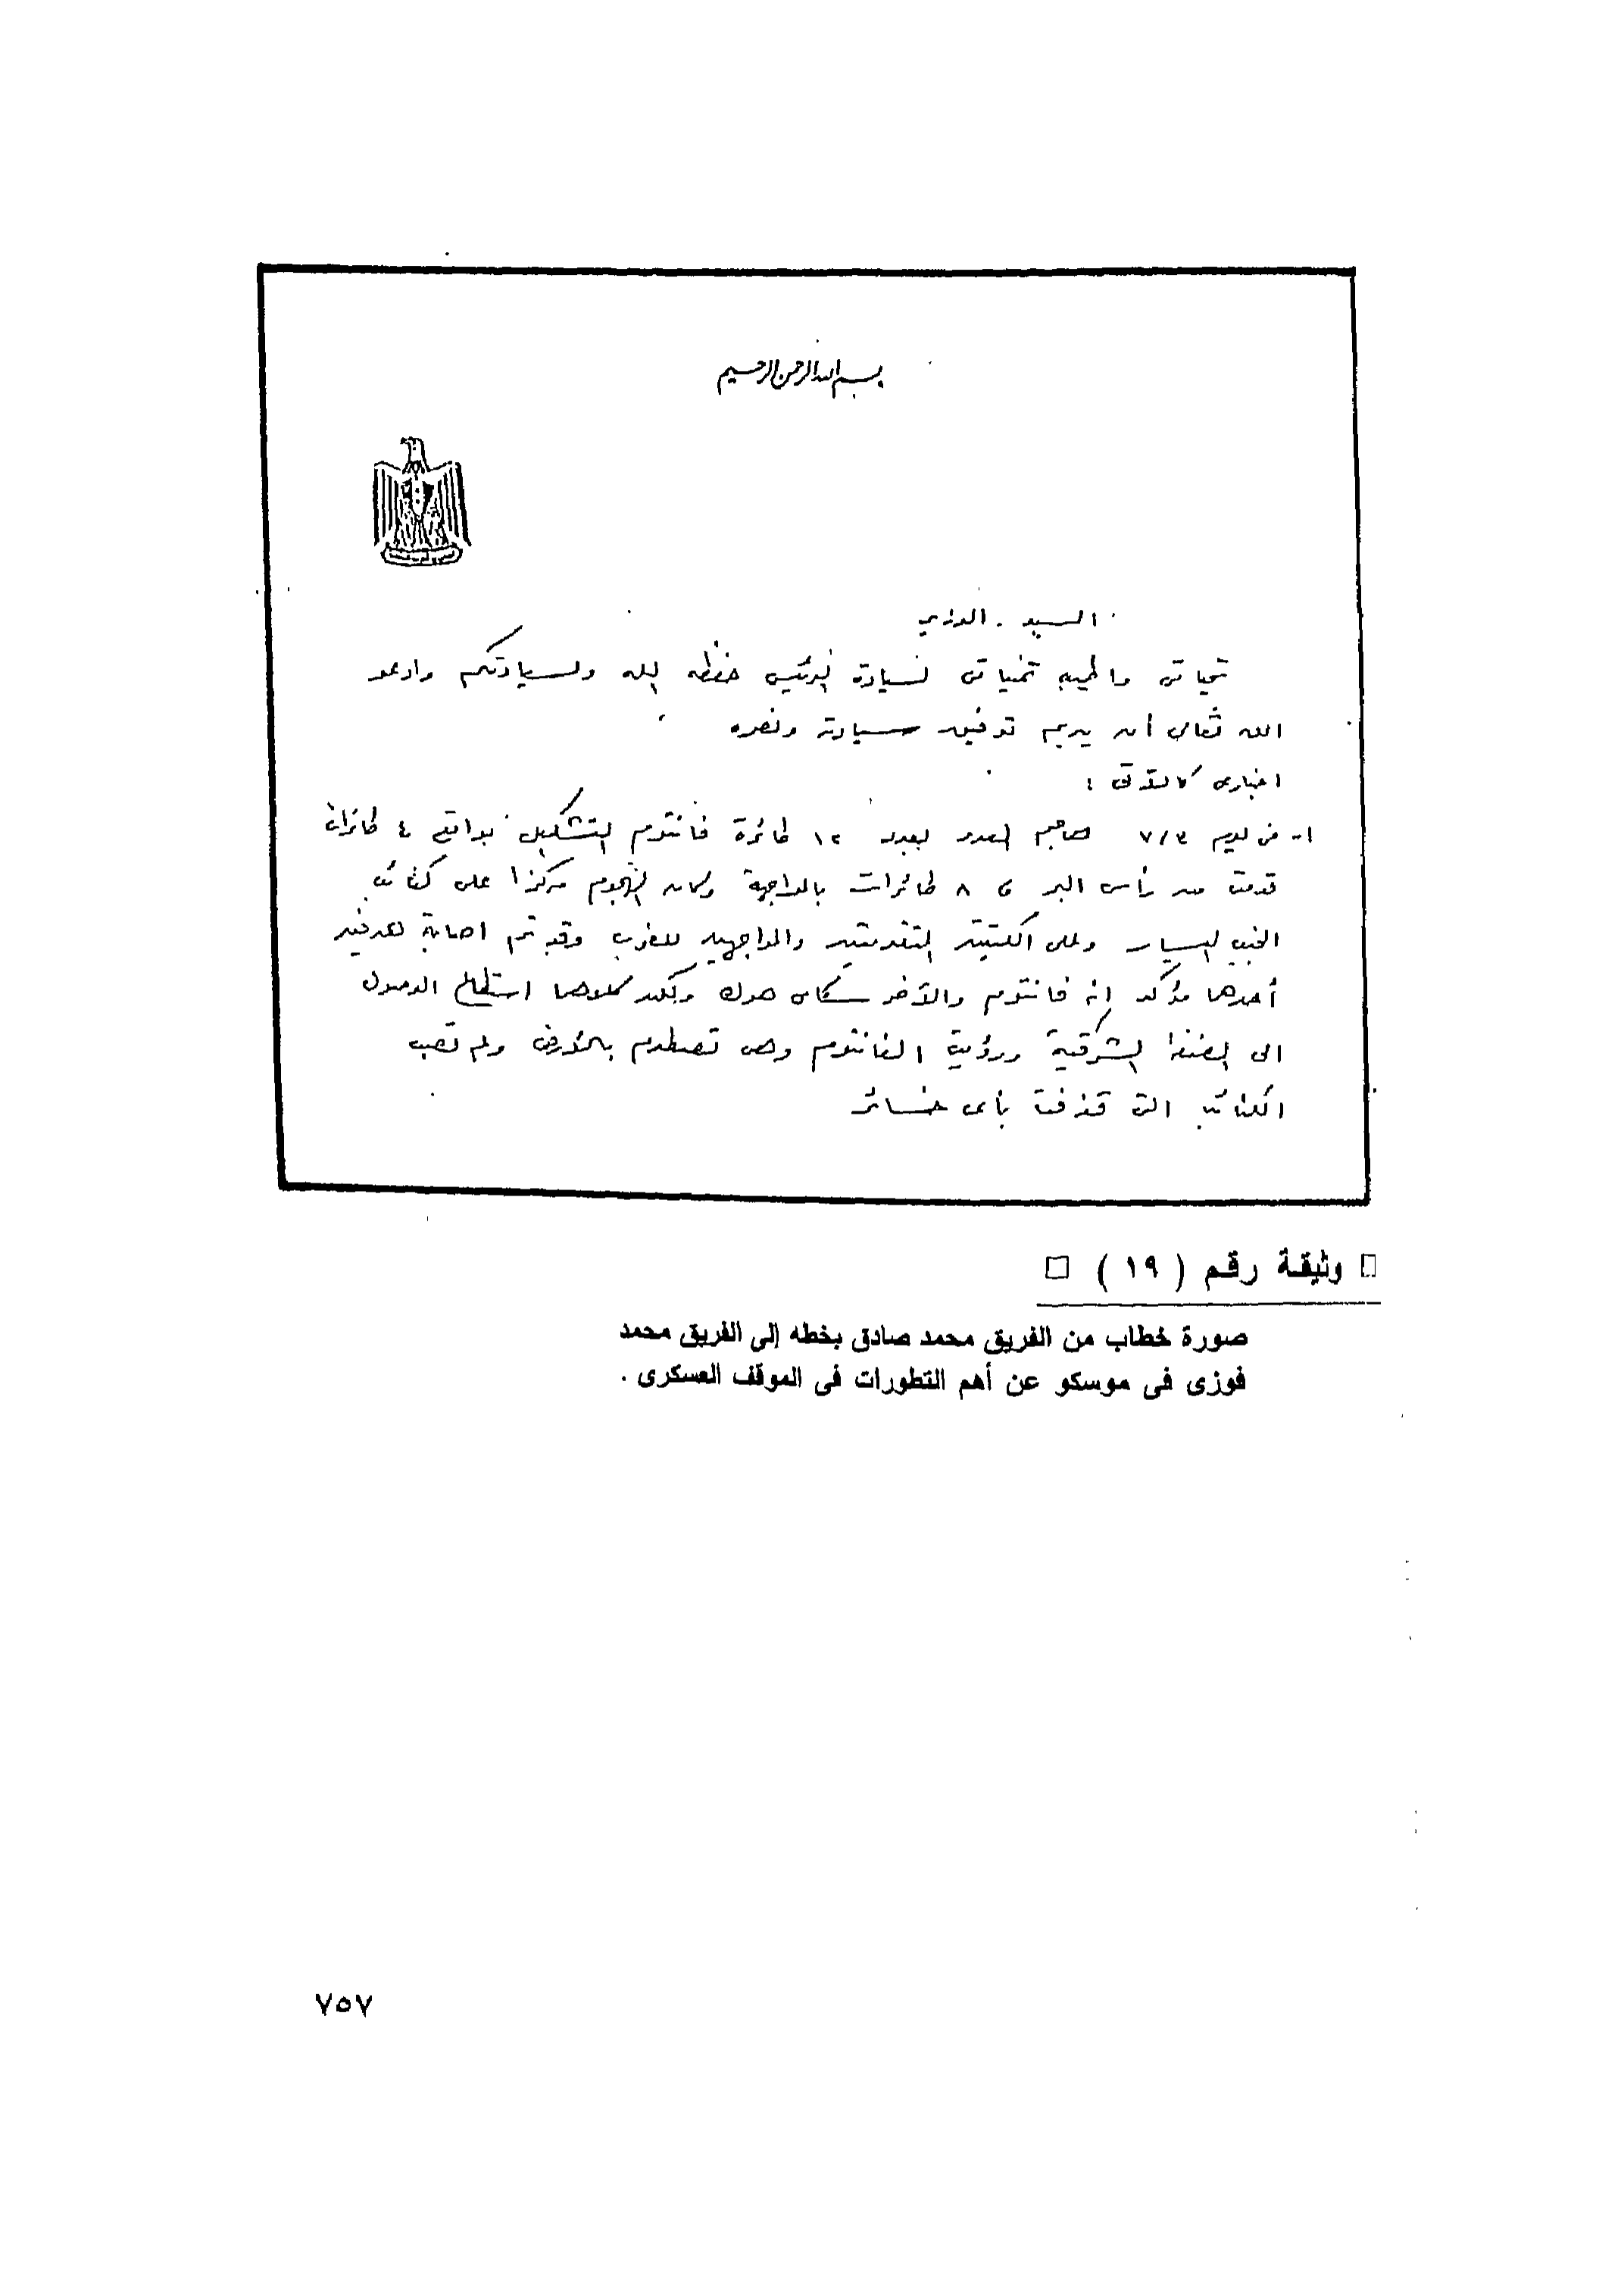 بسم الله الرحمن الرحيم
السيد . الوزير
تحياتى واطيب تمنياتى لسيادة الرئيس حفظه الله ولسيادتكم وادعو
الله تعالى أن يديم توفيق سيادته ونصره
اخبارى كالآتى :
١- فى يوم ٧/٣ هاجم العدو بعدد ١٢ طائرة فانتوم بتشكيل بواقع ٤ طائرات
قدمت من رأس البر و ٨ طائرات بالمواجهة وكان الهجوم مركزا على كتائب
الجنب اليسار وعلى الكتيبتين المتقدمتين والمواجهين للغرب وقد تم اصابة
أحدهما مؤكد انه فانتوم والآخر سكاى هوك ولكن كلاهما استطاع الوصول
الى الضفة الشرقية ورؤيت الفانتوم وهى تصطدم بالأرض ولم تصب
الكتائب التى قذفت بأى خسائر
□ وثيقة رقم ( ١٩ ) □
صورة خطاب من الفريق محمد صادق بخطه إلى الفريق محمد
فوزى فى موسكو عن أهم التطورات فى الموقف العسكرى .
٧٥٧